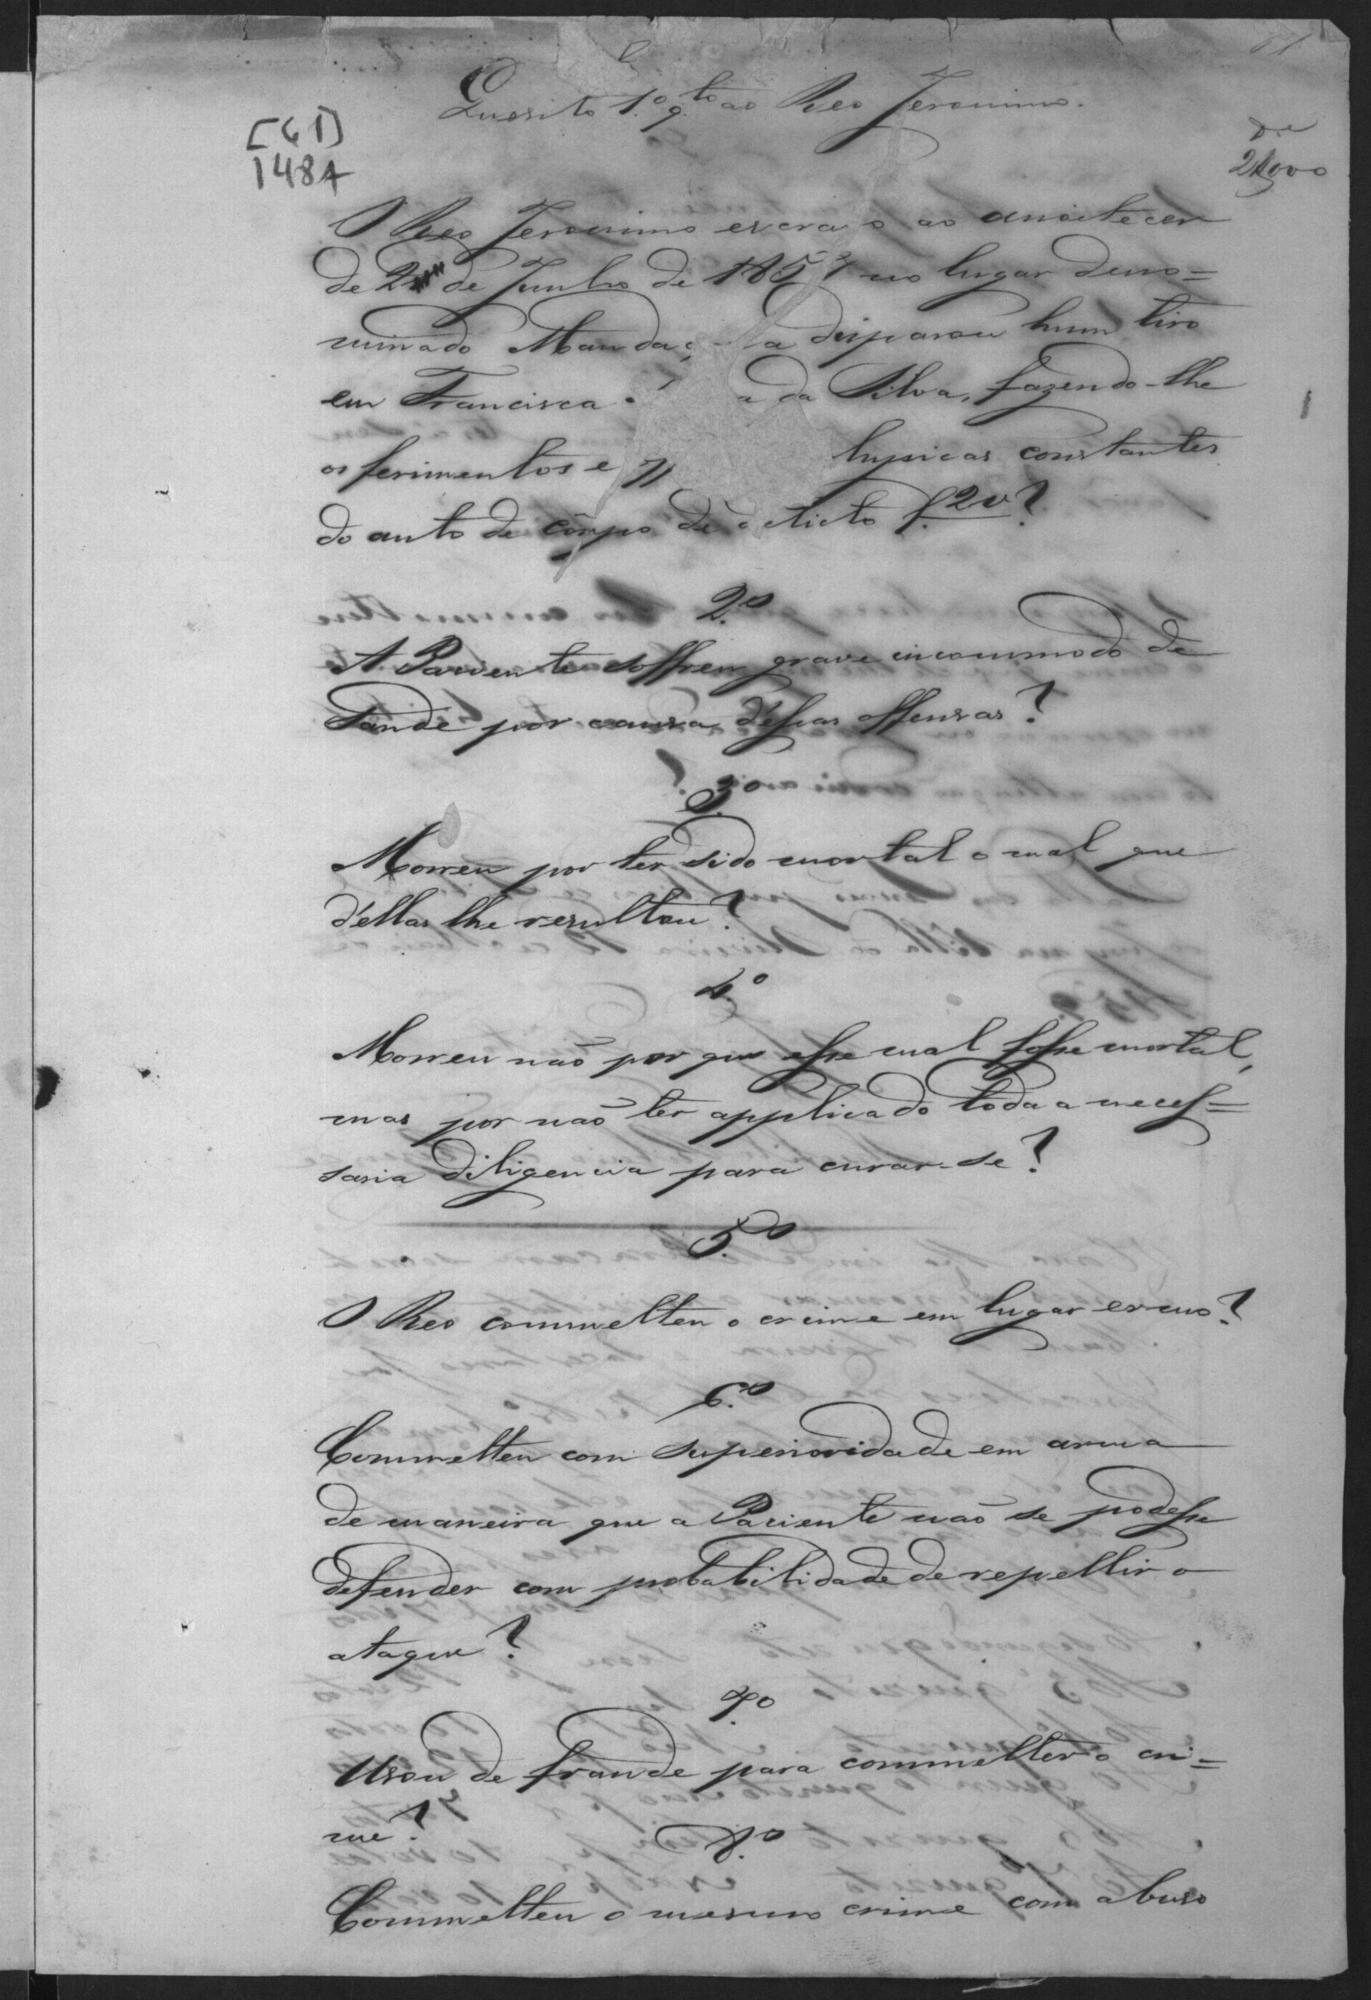 61
Quesito 1.º q.to ao Reo Jeronimo.
[61]
148A
De
2$000
O Reo Jeronimo escravo ao anoitecer
de 2 de Junho de 185 no lugar deno=
minado Manda a disparou hum tiro
em Francisca a da Silva, fazendo-lhe
os ferimentos e physicas constantes
do auto de corpo de delicto f. 2v?
2.º
A Paciente soffreu grave incommodo de
saude por causa d'essas offensas?
3.º
Morreu por ter sido mortal o mal que
d'ellas lhe resultou?
4.º
Morreu não por que esse mal fosse mortal,
mas por não ter applicado toda a neces=
saria diligencia para curar-se?
5.º
O Reo commetteu o crime em lugar ermo?
6.º
Commetteu com superioridade em arma
de maneira que a Paciente não se podesse
defender com probabilidade de repellir o
ataque?
7.º
Usou de fraude para commetter o cri=
me?
8.º
Commetteu o mesmo crime com abuso